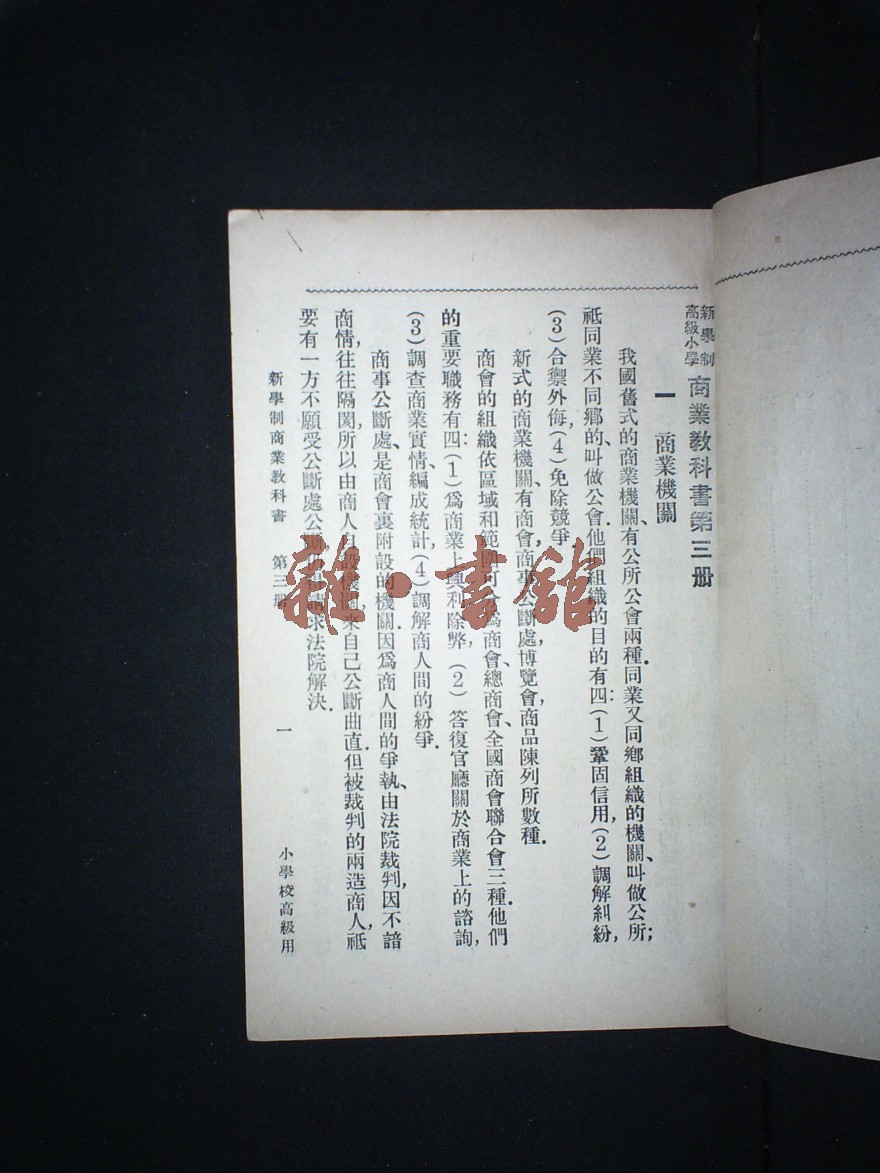 新學制
高級小學
商業教科書第三册
一 商業機關
我國舊式的商業機關、有公所公會兩種.同業又同鄉組織的機關、叫做公所;
祗同業不同鄉的、叫做公會.他們組織的目的有四:(1)鞏固信用,(2)調解糾紛,
(3)合禦外侮,(4)免除競爭.
新式的商業機關、有商會,商事公斷處,博覽會,商品陳列所數種.
商會的組織依區域和範圍可分爲商會、總商會、全國商會聯合會三種.他們
的重要職務有四:(1)爲商業上興利除弊,(2)答復官廳關於商業上的諮詢,
(3)調查商業實情、編成統計,(4)調解商人間的紛爭.
商事公斷處、是商會裏附設的機關.因爲商人間的爭執、由法院裁判,因不諳
商情,往往隔閡,所以由商人自設機關,來自己公斷曲直.但被裁判的兩造商人,祗
要有一方不願受公斷處公斷,請求法院解決.
新學制商業教科書 第三册 一 小學校高級用
雜·書館